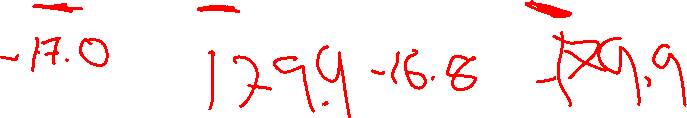 -17.0 179.9 -16.8 -179.9